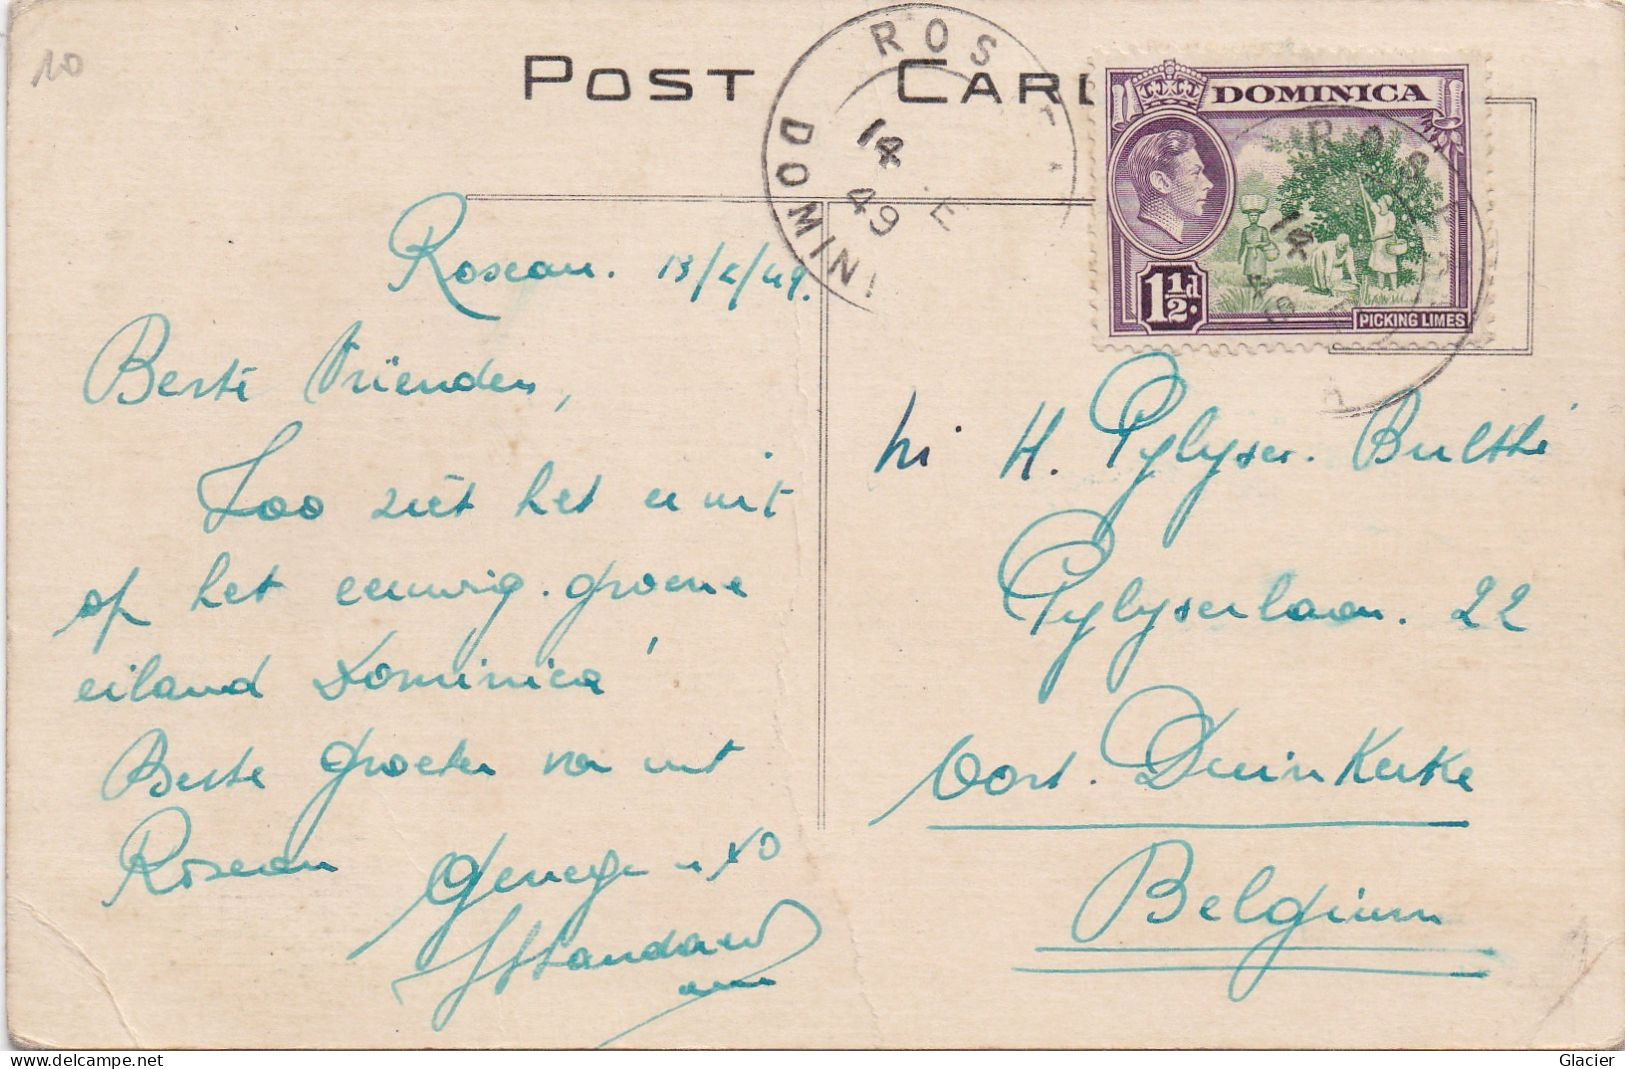 10
POST CARD
ROS
DOMINI
14
E
49
DOMINICA
1½d.
PICKING LIMES
ROS
14
Roseau. 13/ /49.
Beste Vrienden,
Zoo ziet het er uit
op het eeuwig. groene
eiland Dominica!
Beste groeten van uit
Roseau
H. Pylyser. Bulthé
Pylyserlaan. 22
Oost. Duinkerke
Belgium
Glacier